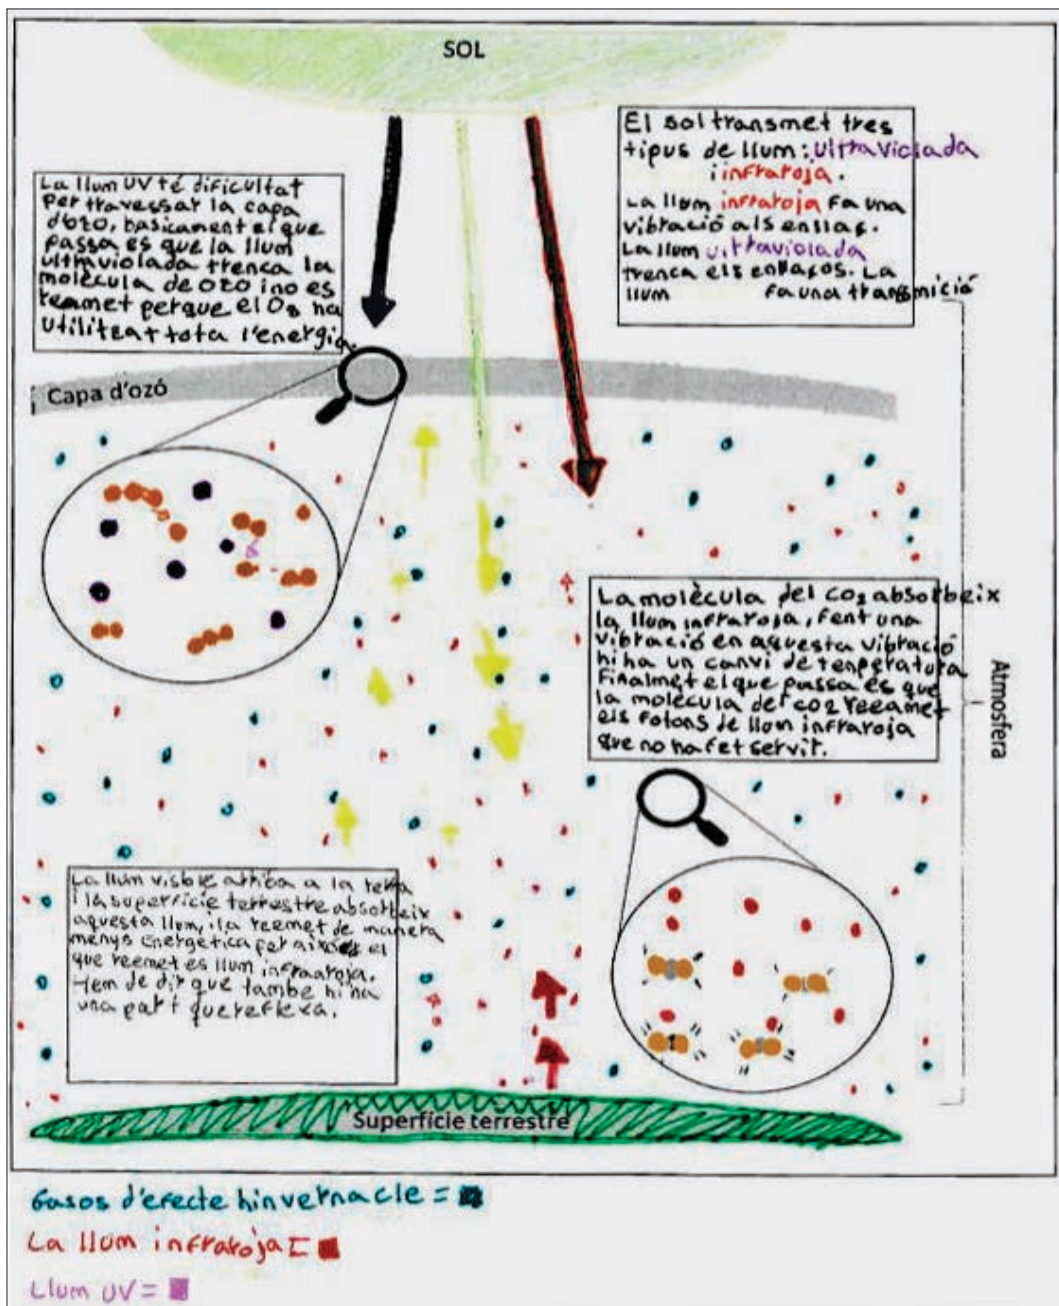 SOL
La llum UV té dificultat
per travessar la capa
d'ozo, basicament el que
passa es que la llum
ultraviolada trenca la
molècula de ozo i no es
reamet perque el O3 ha
utilitzat tota l'energia.
El sol transmet tres
tipus de llum: ultraviolada
i infraroja.
La llum infraroja fa una
vibració als enllaç.
La llum ultraviolada
trenca els enllaços. La
llum fa una transmició
Capa d'ozó
La molècula del CO2 absorbeix
la llum infraroja, fent una
vibració en aquesta vibració
hi ha un canvi de temperatura
Finalmet el que passa és que
la molècula del CO2 reeamet
els fotons de llum infraroja
que no ha fet servir.
Atmosfera
La llum visble arriba a la terra
i la superfície terrestre absorbeix
aquesta llum, i la reemet de manera
menys energètica per això es el
que reemet es llum infraroja.
Hem de dir que tambe hi ha
una part que reflexa.
Superfície terrestre
Gasos d'efecte hinvernacle =
La llum infraroja =
Llum UV =